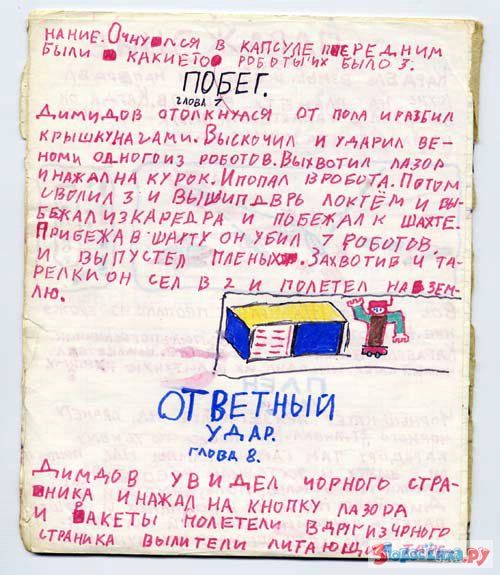 НАНИЕ. ОЧНУЛСЯ В КАПСУЛЕ ПЕРЕДНИМ
БЫЛИ КАКИЕТО РОБОТЫ ИХ БЫЛО 3.
ПОБЕГ.
ГЛАВА 7
ДИМИДОВ ОТОЛКНУЛСЯ ОТ ПОЛА И РАЗБИЛ
КРЫШКУ НАГАМИ. ВЫСКОЧИЛ И УДАРИЛ ВЕ-
НОМИ ОДНОГО ИЗ РОБОТОВ. ВЫХВОТИЛ ЛАЗОР
И НАЖАЛ НА КУРОК. И ПОПАЛ В РОБОТА. ПОТОМ
СВОЛИЛ 3 И ВЫШИП ДВРЬ ЛОКТЁМ И ВЫ-
БЕЖАЛ ИЗ КАРЕДРА И ПОБЕЖАЛ К ШАХТЕ.
ПРИБЕЖАВ ШАХТУ ОН УБИЛ 7 РОБОТОВ.
И ВЫПУСТЕЛ ПЛЕНЫХ. ЗАХВОТИВ 4 ТА-
РЕЛКИ ОН СЕЛ В 2 И ПОЛЕТЕЛ НА ЗЕМ-
ЛЮ.
ОТВЕТНЫЙ
УДАР.
ГЛАВА 8.
ДИМДОВ УВИДЕЛ ЧОРНОГО СТРА-
НИКА И НАЖАЛ НА КНОПКУ ЛАЗОРА
И РАКЕТЫ ПОЛЕТЕЛИ ВДРУГ ИЗ ЧРНОГО
СТРАНИКА ВЫЛИТЕЛИ ЛИТАЮЩИ
ЗДОРОСЛИКА.РУ